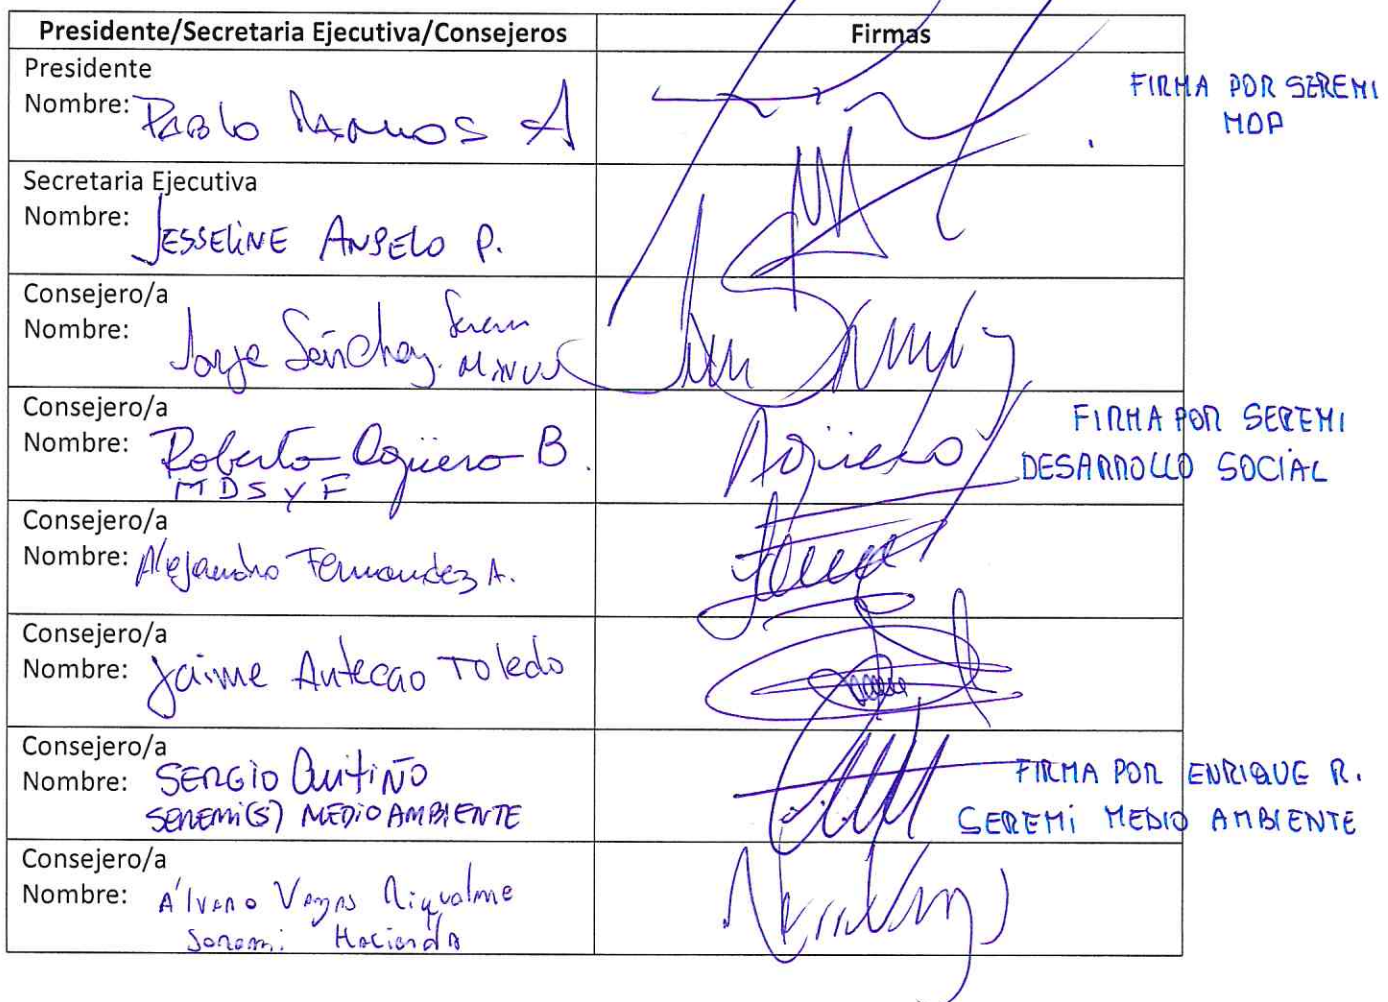 Presidente/Secretaria Ejecutiva/Consejeros Firmas
Presidente
Nombre: Pablo Ramos A
FIRMA POR SEREMI
MOP
Secretaria Ejecutiva
Nombre: JESSELINE ANGELO P.
Consejero/a
Nombre: Jorge Sánchez. Seremi
MINVU
Consejero/a
Nombre: Roberto Agüero B.
MDSYF
Agüero
FIRMA POR SEREMI
DESARROLLO SOCIAL
Consejero/a
Nombre: Alejandro Fernandez A.
Consejero/a
Nombre: Jaime Antecao Toledo
Consejero/a
Nombre: SERGIO QuitiÑO
SEREMi(S) MEDiO AMBIENTE
FIRMA POR ENRIQUE R.
SEREMi MEDIO AMBIENTE
Consejero/a
Nombre: Álvaro Vargas Riquelme
Seremi Hacienda